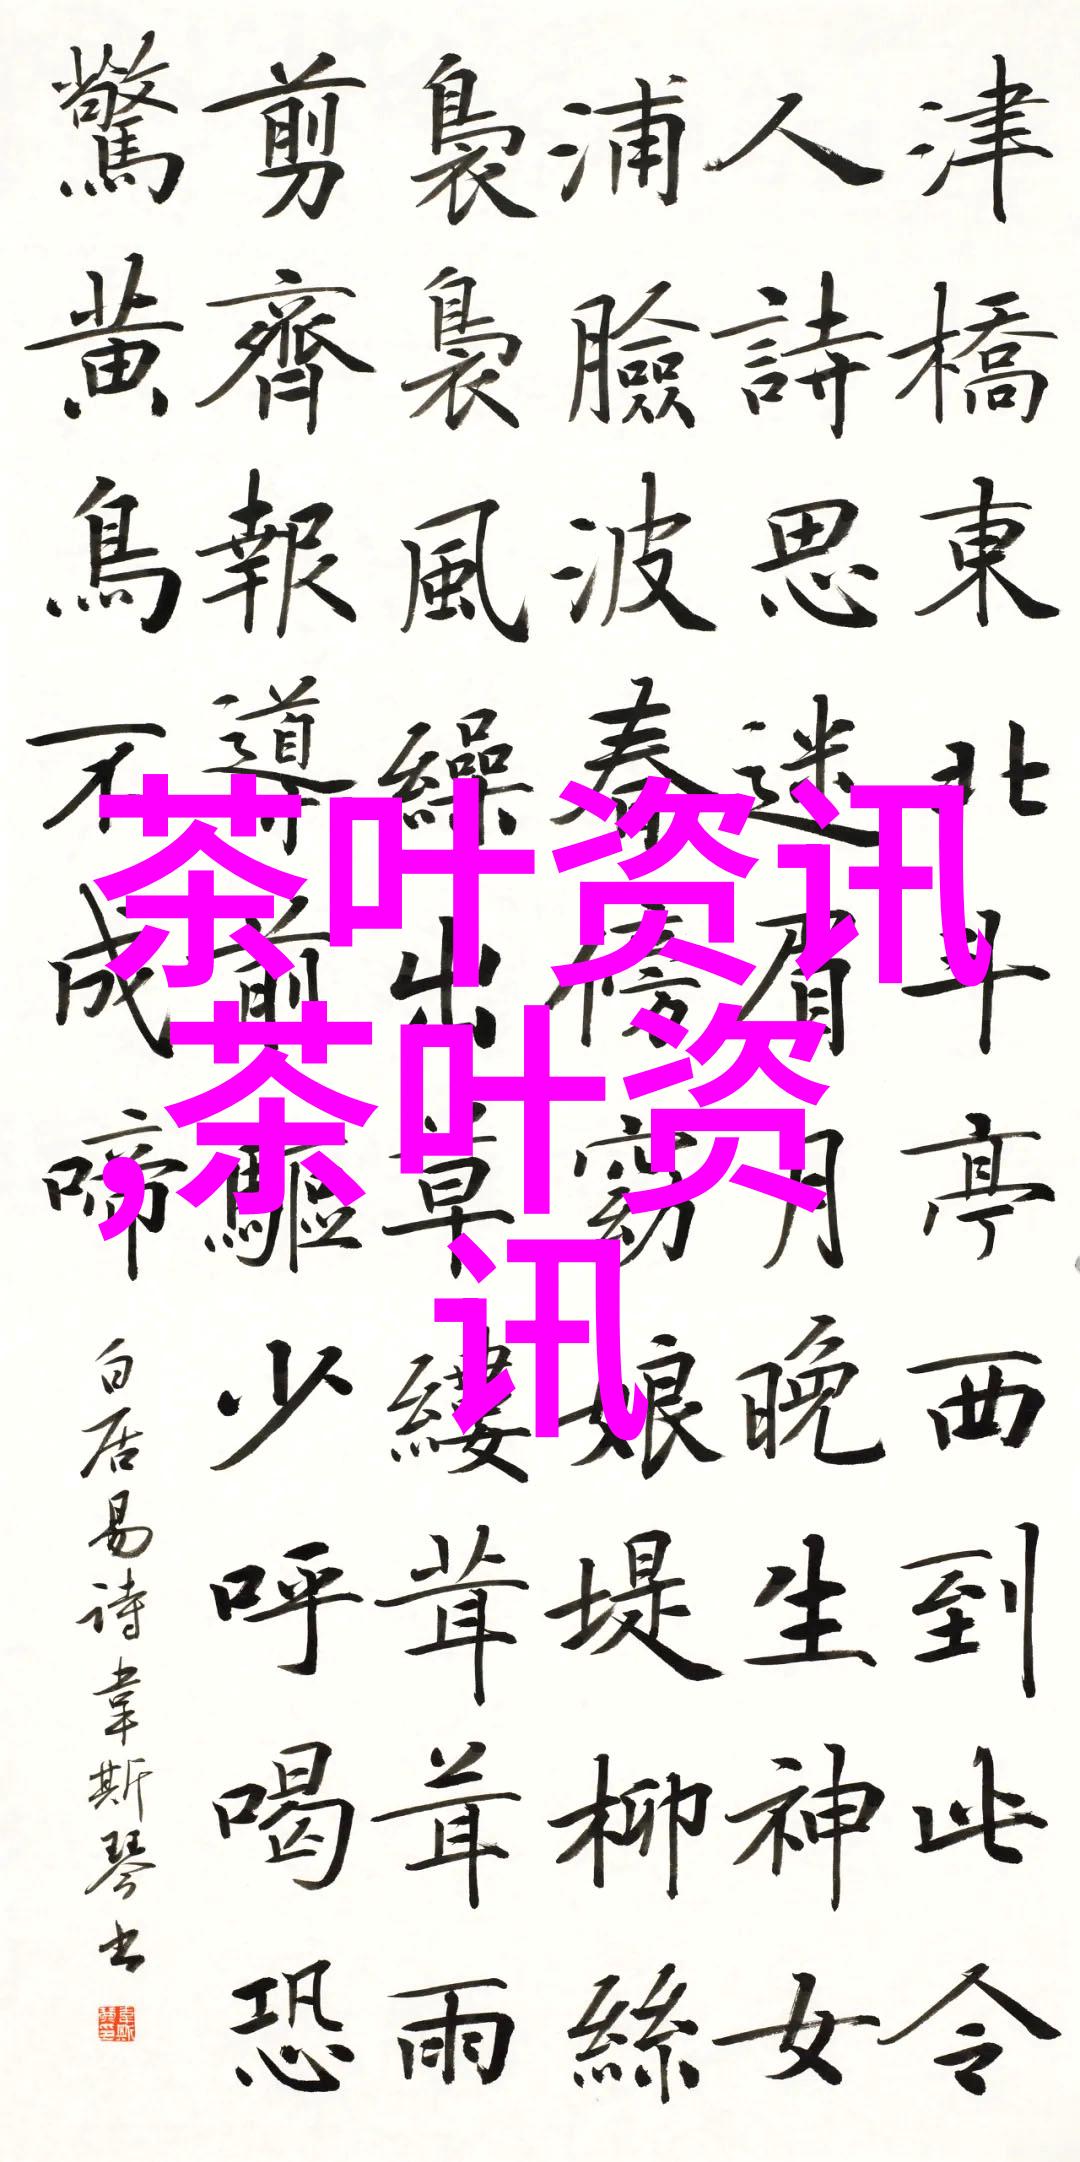 津橋東北斗亭西到此令
人詩思迷眉月晚生神女
浦臉波春傍窈娘堤柳絲
裊裊風繰出草縷茸茸雨
剪齊報道前驅少呼喝恐
驚黃鳥不成啼
白居易诗韋斯琴书
茶叶资讯
,茶叶资
讯